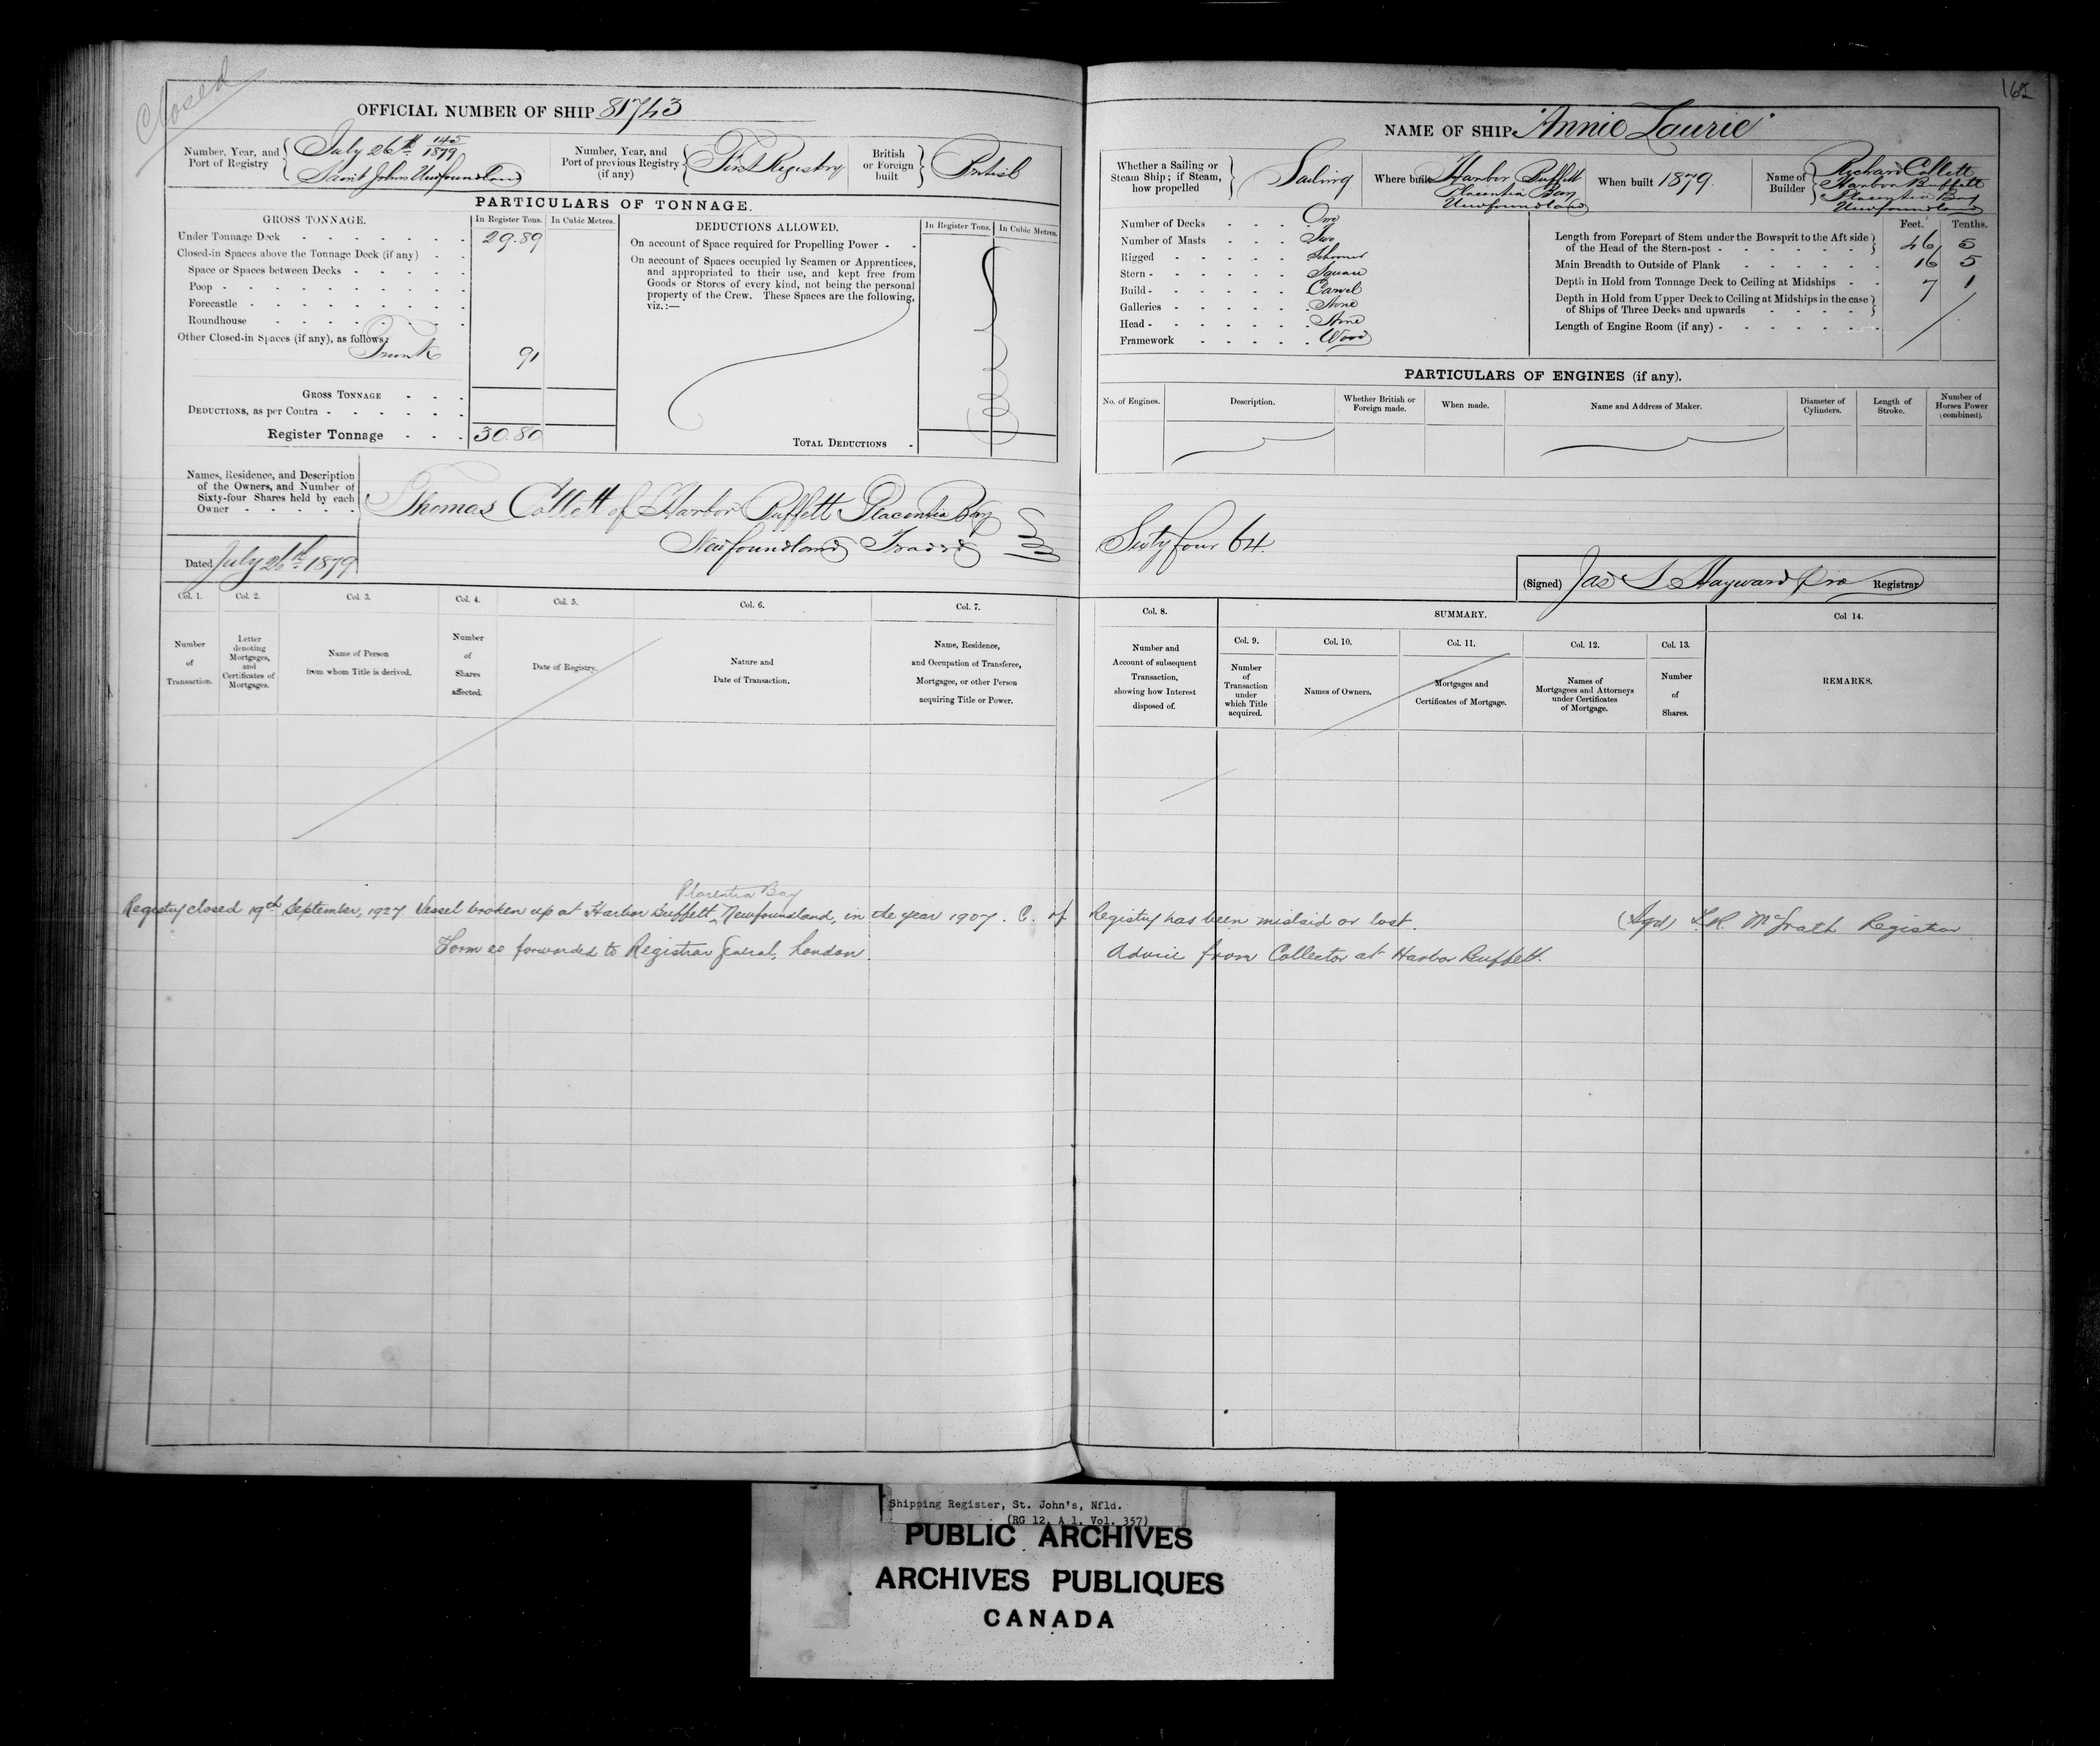 Closed
OFFICIAL NUMBER OF SHIP 81743
Number, Year, and Port of Registry
July 26th 145/1879
Saint Johns Newfoundland
Number, Year, and Port of previous Registry (if any)
First Registry
British or Foreign built
British
PARTICULARS OF TONNAGE.
GROSS TONNAGE.
In Register Tons.
In Cubic Metres.
Under Tonnage Deck 29.89
Closed-in Spaces above the Tonnage Deck (if any)
Space or Spaces between Decks
Poop
Forecastle
Roundhouse
Other Closed-in Spaces (if any), as follows:
Trunk 91
GROSS TONNAGE
DEDUCTIONS, as per Contra
Register Tonnage 30.80
DEDUCTIONS ALLOWED.
In Register Tons.
In Cubic Metres.
On account of Space required for Propelling Power
On account of Spaces occupied by Seamen or Apprentices,
and appropriated to their use, and kept free from
Goods or Stores of every kind, not being the personal
property of the Crew. These Spaces are the following,
viz.:—
TOTAL DEDUCTIONS
Names, Residence, and Description
of the Owners, and Number of
Sixty-four Shares held by each
Owner
Thomas Collett of Harbor Buffett Placentia Bay
Newfoundland Trader
Dated July 26th 1879
Col. 1.
Number
of
Transaction.
Col. 2.
Letter
denoting
Mortgages,
and
Certificates of
Mortgages.
Col. 3.
Name of Person
from whom Title is derived.
Col. 4.
Number
of
Shares
affected.
Col. 5.
Date of Registry.
Col. 6.
Nature and
Date of Transaction.
Col. 7.
Name, Residence,
and Occupation of Transferee,
Mortgagee, or other Person
acquiring Title or Power.
165
NAME OF SHIP "Annie Laurie"
Whether a Sailing or
Steam Ship; if Steam,
how propelled
Sailing
Where built
Harbor Buffett
Placentia Bay
Newfoundland
When built 1879.
Name of
Builder
Richard Collett
Harbor Buffett
Placentia Bay
Newfoundland
Number of Decks One
Number of Masts Two
Rigged Schooner
Stern Square
Build Carvel
Galleries None
Head None
Framework Wood
Feet. Tenths.
Length from Forepart of Stem under the Bowsprit to the Aft side
of the Head of the Stern-post 46 5
Main Breadth to Outside of Plank 16 5
Depth in Hold from Tonnage Deck to Ceiling at Midships 7 1
Depth in Hold from Upper Deck to Ceiling at Midships in the case
of Ships of Three Decks and upwards
Length of Engine Room (if any)
PARTICULARS OF ENGINES (if any).
No. of Engines.
Description.
Whether British or
Foreign made.
When made.
Name and Address of Maker.
Diameter of
Cylinders.
Length of
Stroke.
Number of
Horses Power
(combined).
Sixty four 64.
(Signed) Jas S Hayward Pro Registrar
Col. 8.
Number and
Account of subsequent
Transaction,
showing how Interest
disposed of.
SUMMARY.
Col. 9.
Number
of
Transaction
under
which Title
acquired.
Col. 10.
Names of Owners.
Col. 11.
Mortgages and
Certificates of Mortgage.
Col. 12.
Names of
Mortgagees and Attorneys
under Certificates
of Mortgage.
Col. 13.
Number
of
Shares.
Col 14.
REMARKS.
Placentia Bay
Registry closed 19th September, 1927 Vessel broken up at Harbor Buffett, Newfoundland, in the year 1907. C. of Registry has been mislaid or lost. (Sgd) McGrath Registrar
Form 20 forwarded to Registrar General, London. Advice from Collector at Harbor Buffett.
Shipping Register, St. John's, Nfld.
(RG 12, A 1, Vol. 357)
PUBLIC ARCHIVES
ARCHIVES PUBLIQUES
CANADA